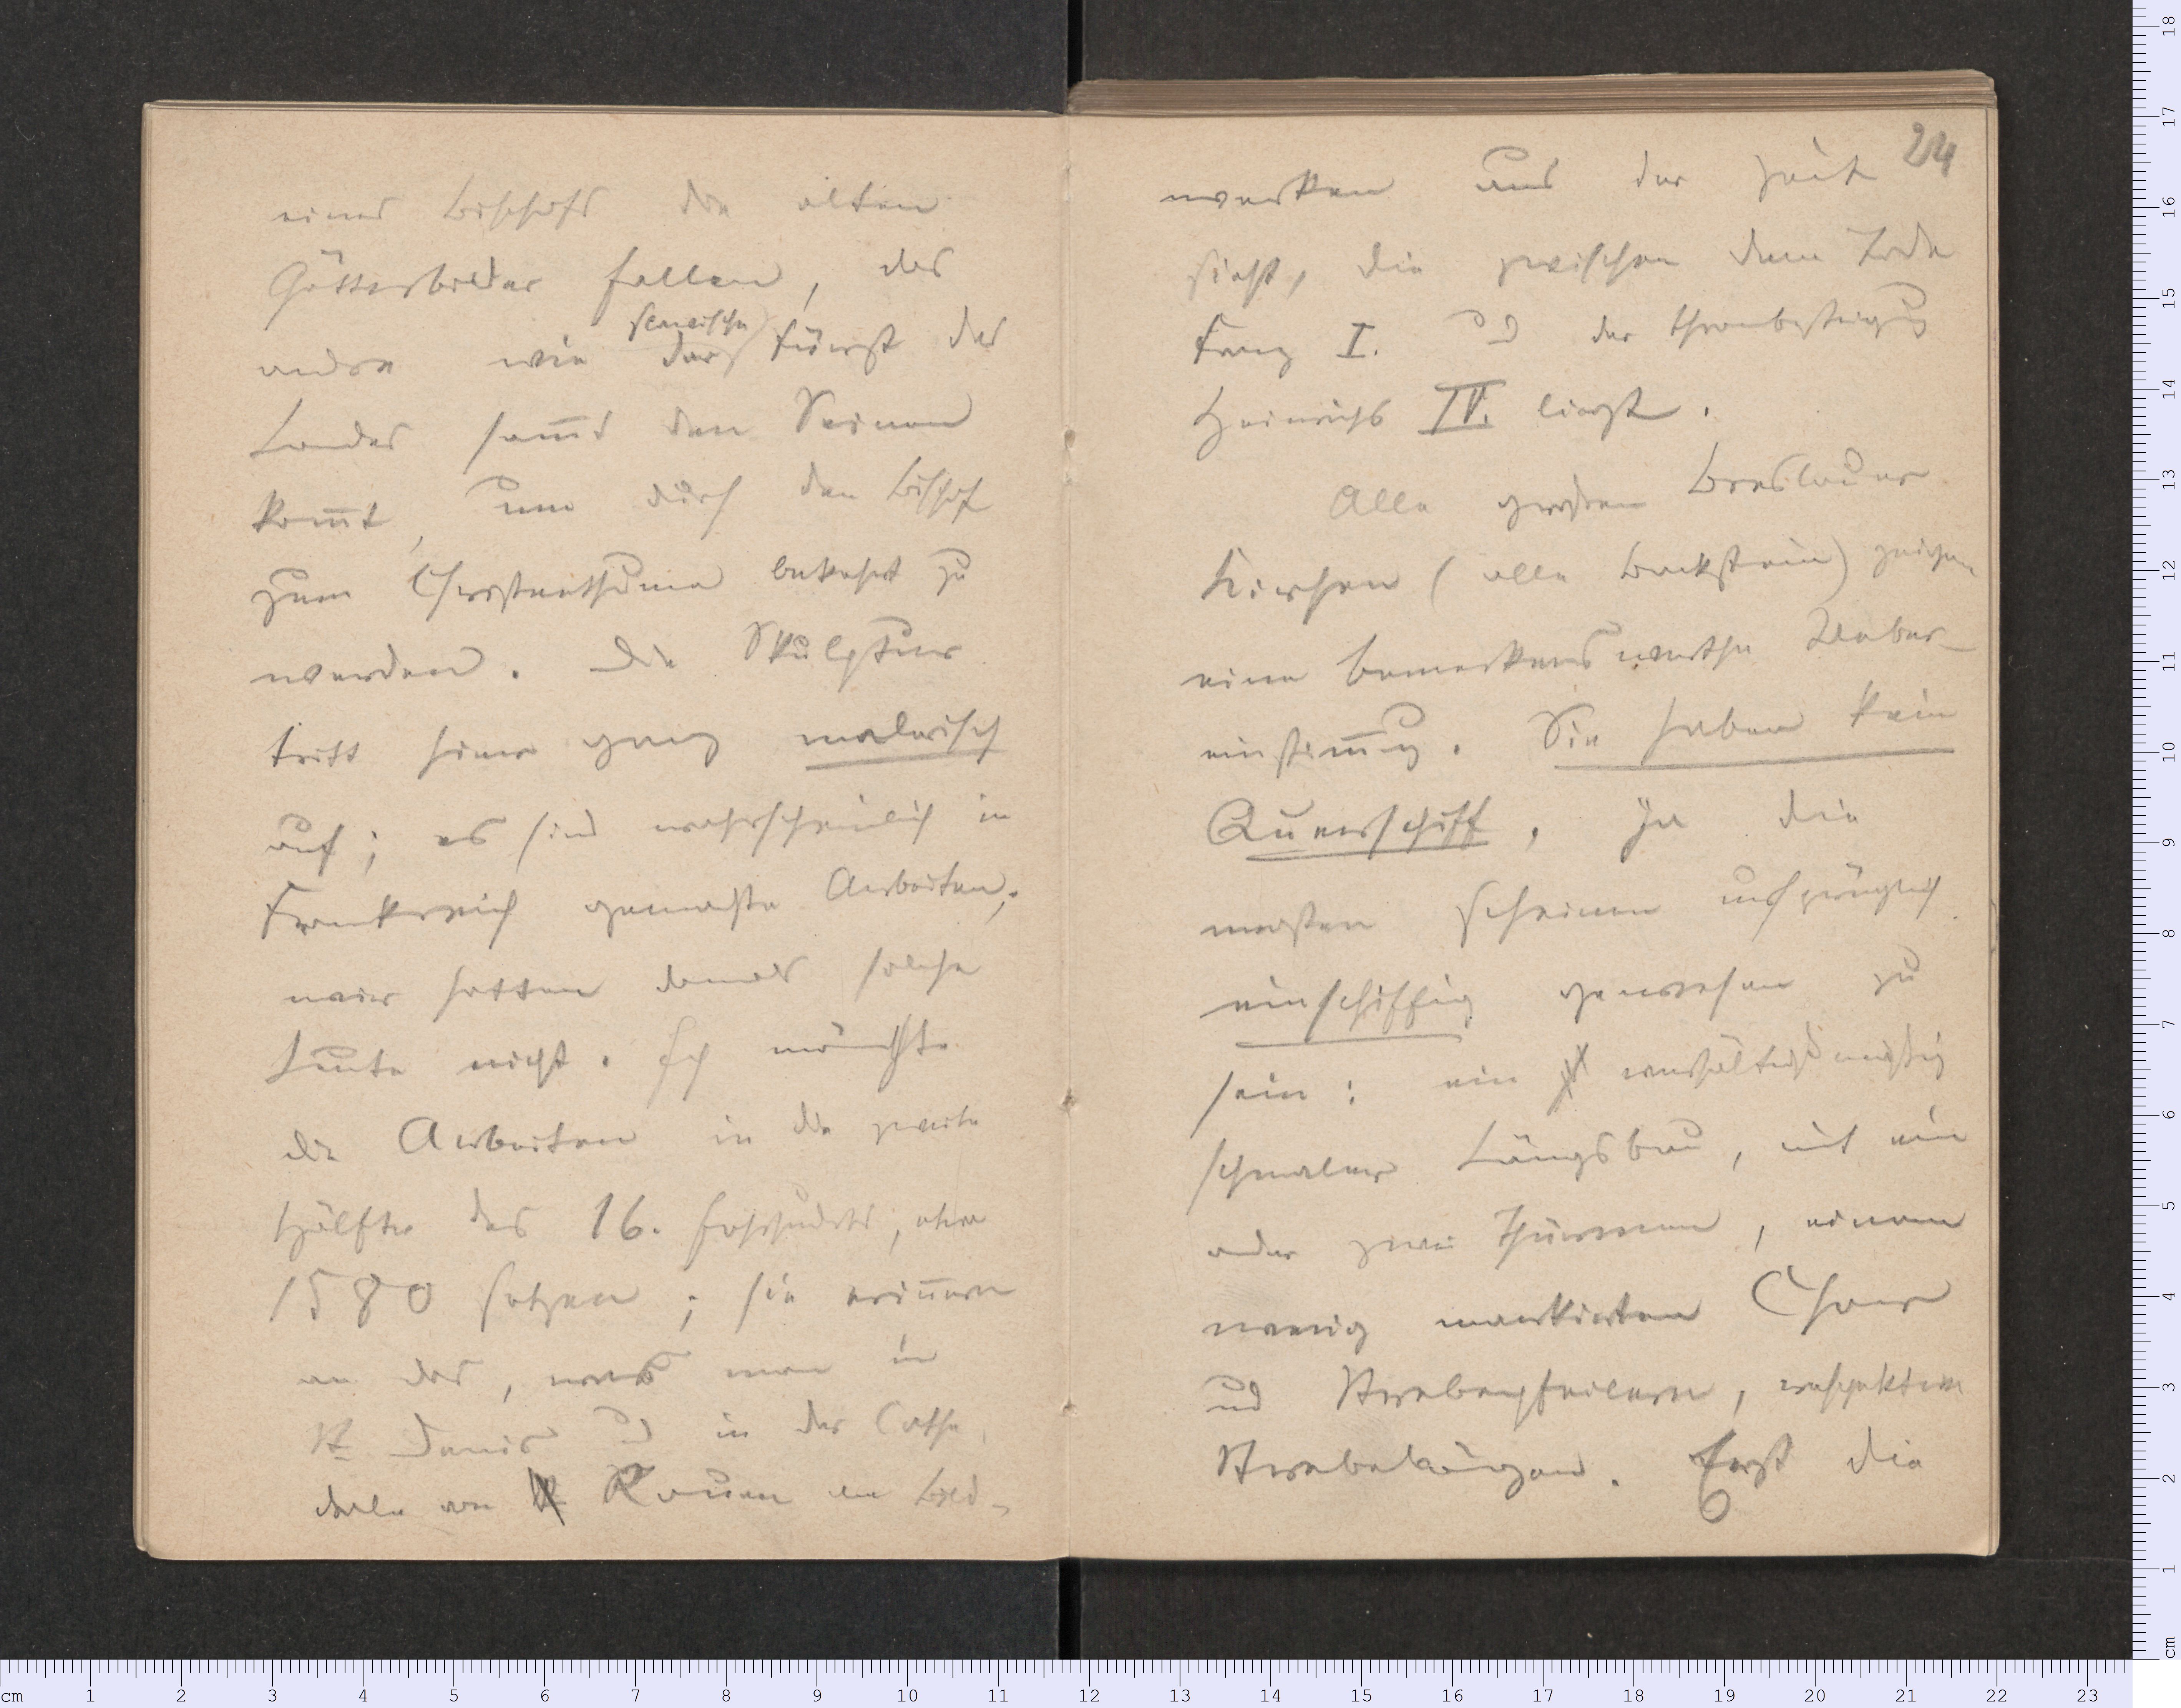 eines Bischofs die alten
Götterbilder fallen, das
andre wie der heidnische Fürst des
Landes sam̅t den Seinen
kom̅t, um durch den Bischof
zum Christenthume bekehrt zu
werden. Die Skulptur
tritt hier ganz malerisch
auf; es sind wahrscheinlich in
Frankreich gemachte Arbeiten;
wir hatten damals solche
Leute nicht. Ich möchte
die Arbeiten in die zweite
Hälfte des 16. Jahrhunderts, etwa
1580 setzen; sie erin̅ern
an das, was man in
St Denis und in der Cathe
drale von Rouen an Bild-
24
werken aus der Zeit
sieht, die zwischen dem Tode
Franz I. und der Thronbesteigung
Heinrichs IV. liegt.
Alle großen Breslauer
Kirchen (alle Backstein) zeigen
eine bemerkenswerthe Ueber-
einstim̅ung. Sie haben kein
Querschiff, ja die
meisten scheinen ursprünglich
einschiffig gewesen zu
sein: ein verhältnißmäßig
schmaler Längsbau, mit ein
oder zwei Thürmen, einem
wenig markirten Chor
und Strebepfeilern, respektive
Strebebögen. Erst die